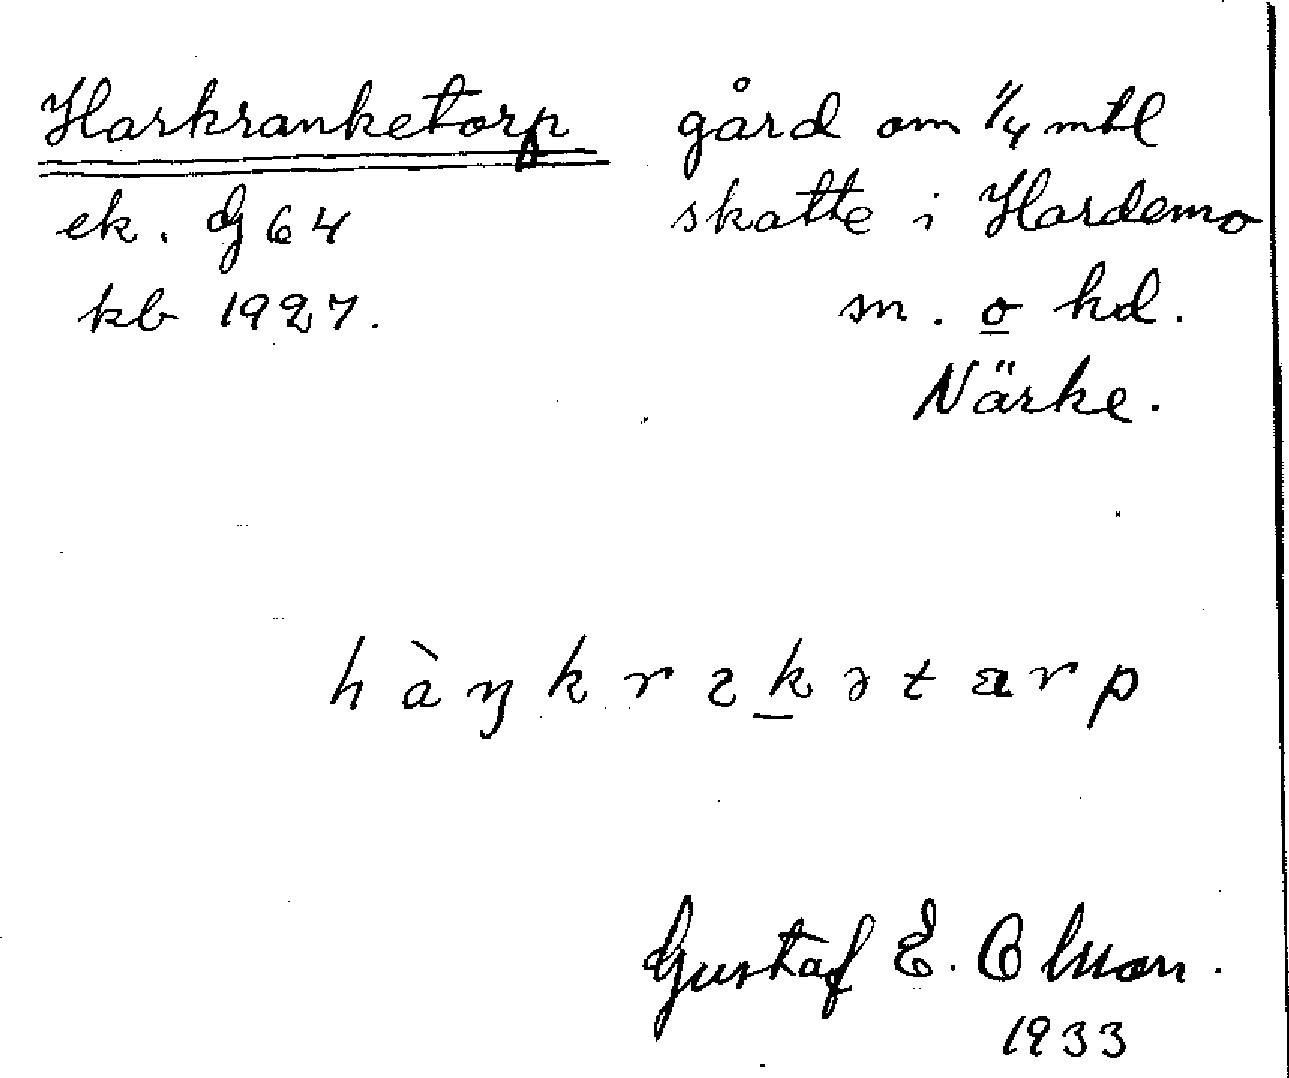 Harkranketorp gård om 1/4 mtl
ek. dj 64 skatte i Hardemo
kb 1927. sn. o hd.
Närke.
hàŋkrɿkətarp
Gustaf E. Olsson.
1933